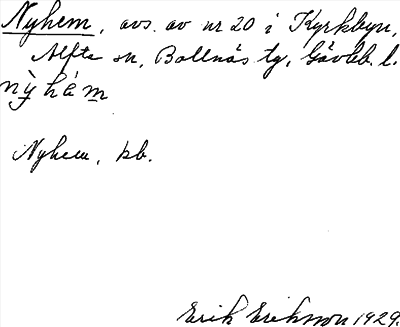 Nyhem, avs. av nr 20 i Kyrkbyn,
Alfta sn, Bollnäs tg, Gävleb. l.
nỳhém
Nyhem, kb.
Erik Eriksson 1929.